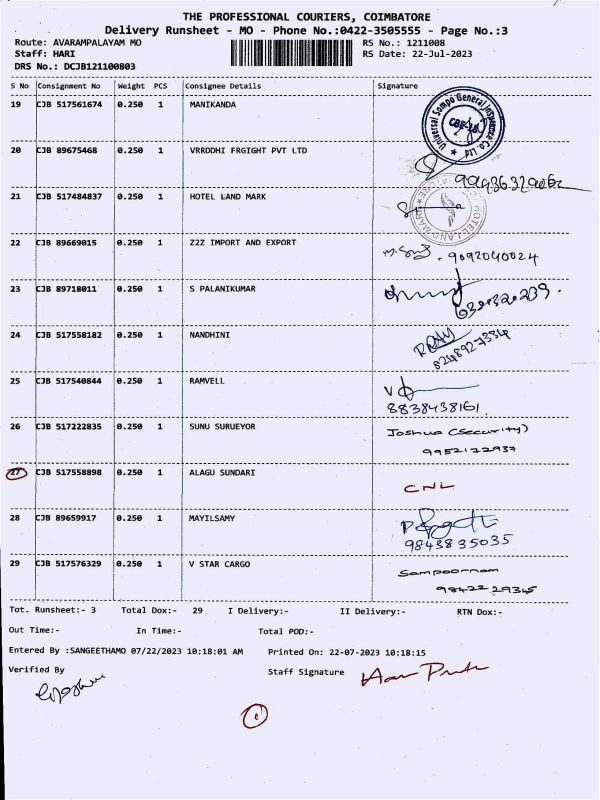 THE PROFESSIONAL COURIERS, COIMBATORE
Delivery Runsheet - MO - Phone No.:0422-3505555 - Page No.:3
Route: AVARAMPALAYAM MO RS No.: 1211008
Staff: HARI RS Date: 22-Jul-2023
DRS No.: DCJB121100803
S No Consignment No Weight PCS Consignee Details Signature
19 CJB 517561674 0.250 1 MANIKANDA
Universal Sompo General Insurance Co. Ltd
20 CJB 89675468 0.250 1 VRRDDHI FRGIGHT PVT LTD
21 CJB 517484837 0.250 1 HOTEL LAND MARK
HOTEL LAND MARK
22 CJB 89669015 0.250 1 Z2Z IMPORT AND EXPORT
9092040024
23 CJB 89718011 0.250 1 S PALANIKUMAR
24 CJB 517558182 0.250 1 NANDHINI
8248927334
25 CJB 517540844 0.250 1 RAMVELL
8838438161
26 CJB 517222835 0.250 1 SUNU SURUEYOR Joshua (Security)
9952172937
27 CJB 517558898 0.250 1 ALAGU SUNDARI
CNL
28 CJB 89659917 0.250 1 MAYILSAMY
9843835035
29 CJB 517576329 0.250 1 V STAR CARGO Sampoornam
9842229345
Tot. Runsheet:- 3 Total Dox:- 29 I Delivery:- II Delivery:- RTN Dox:-
Out Time:- In Time:- Total POD:-
Entered By :SANGEETHAMO 07/22/2023 10:18:01 AM Printed On: 22-07-2023 10:18:15
Verified By Staff Signature